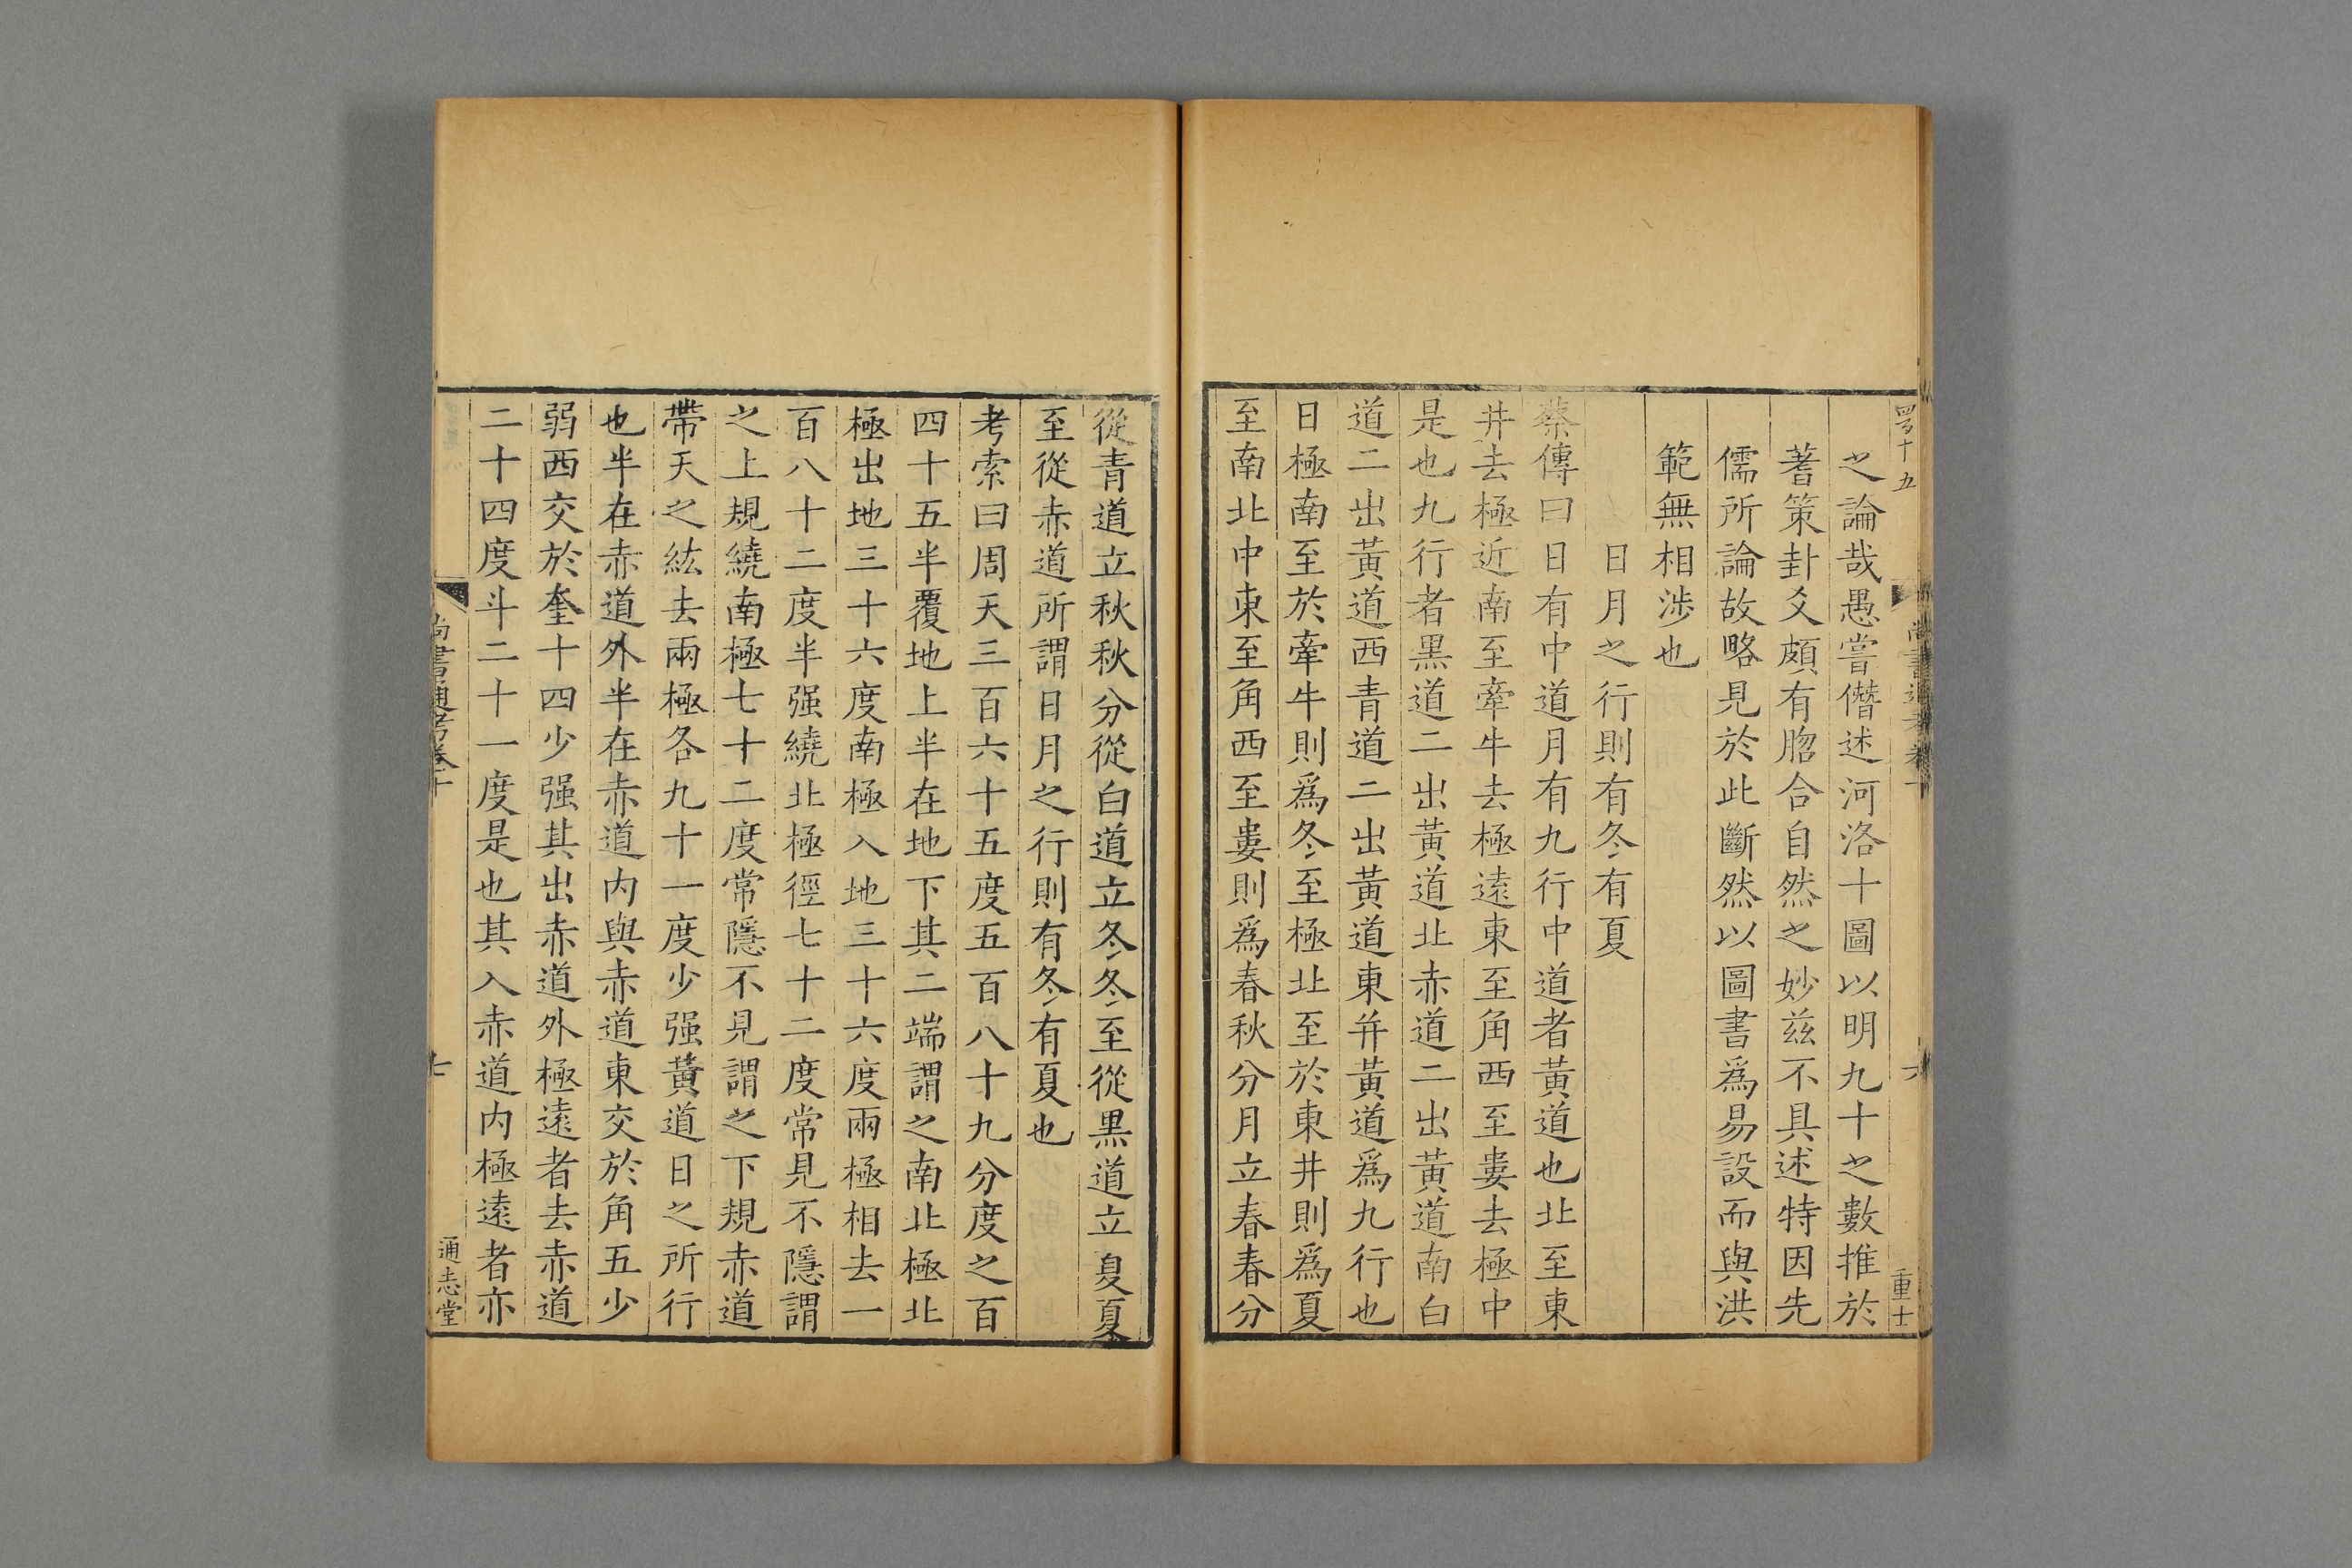 之論哉愚嘗僭述河洛十圖以明九十之數推於
蓍策卦爻頗有脗合自然之妙兹不具述特因先
儒所論故略見於此斷然以圖書爲易設而與洪
範無相涉也
日月之行則有冬有夏
蔡傳曰日有中道月有九行中道者黃道也北至東
井去極近南至牽牛去極遠東至角西至婁去極中
是也九行者黑道二出黃道北赤道二出黃道南白
道二出黃道西青道二出黃道東并黃道爲九行也
日極南至於牽牛則爲冬至極北至於東井則爲夏
至南北中東至角西至婁則爲春秋分月立春春分
從青道立秋秋分從白道立冬冬至從黑道立夏夏
至從赤道所謂日月之行則有冬有夏也
考索曰周天三百六十五度五百八十九分度之百
四十五半覆地上半在地下其二端謂之南北極北
極出地三十六度南極入地三十六度兩極相去一
百八十二度半强繞北極徑七十二度常見不隱謂
之上規繞南極七十二度常隱不見謂之下規赤道
帶天之紘去兩極各九十一度少强黃道日之所行
也半在赤道外半在赤道内與赤道東交於角五少
弱西交於奎十四少强其出赤道外極遠者去赤道
二十四度斗二十一度是也其入赤道内極遠者亦
尚書通考卷十
七
通志堂